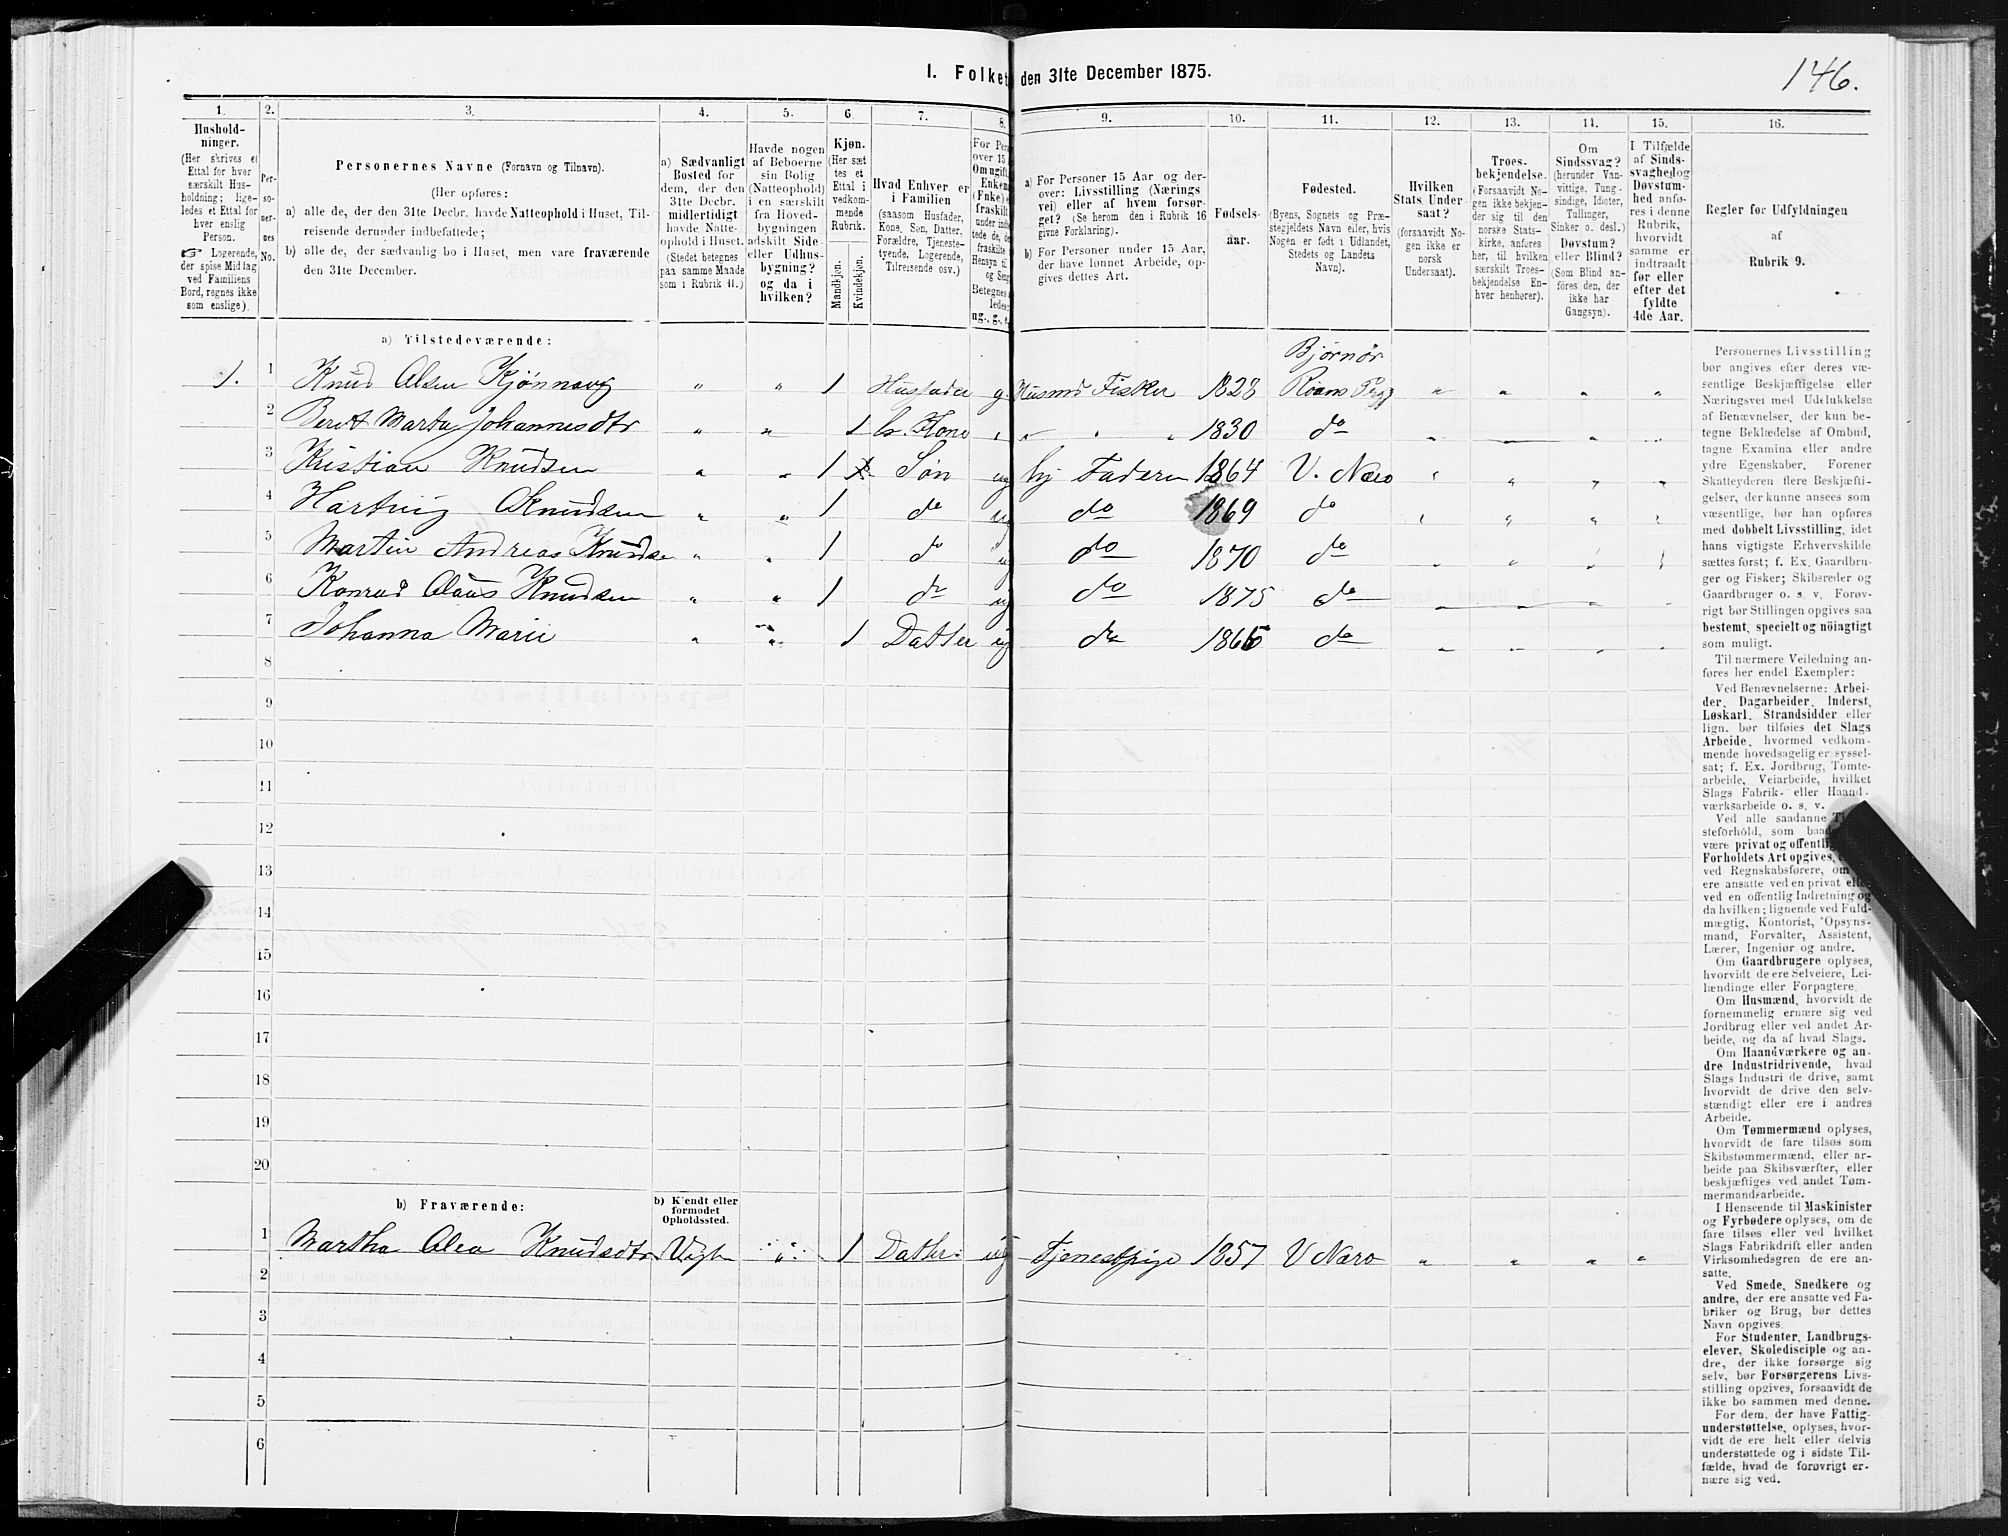 I. Folket den 31te December 1875.
146.
1. 2. 3. 4. 5. 6 7. 8. 9. 10. 11. 12. 13. 14. 15. 16.
Hushold-
ninger.
(Her skrives et
Ettal for hver
særskilt Hus-
holdning; lige-
ledes et Ettal for
hver enslig
Person.
☞ Logerende,
der spise Middag
ved Familiens
Bord, regnes ikke
som enslige).
Per-
so-
ner-
nes
No.
Personernes Navne (Fornavn og Tilnavn).
(Her opføres:
a) alle de, der den 31te Decbr. havde Natteophold i Huset, Til-
reisende derunder indbefattede;
b) alle de, der sædvanlig bo i Huset, men vare fraværende
den 31te December.
a) Sædvanligt
Bosted for
dem, der den
31te Decbr.
midlertidigt
havde Natte-
ophold i Huset.
(Stedet betegnes
paa samme Maade
som i Rubrik 11.)
Havde nogen
af Beboerne
sin Bolig
(Natteophold)
i en særskilt
fra Hoved-
bygningen
adskilt Side-
eller Udhus-
bygning?
og da i
hvilken?
Kjøn.
(Her sæt
tes et
Ettal i
vedkom-
mende
Rubrik.
Mandkjøn.
Kvindekjøn.
Hvad Enhver er
i Familien
(saasom Husfader,
Kone, Søn, Datter,
Forældre, Tjeneste-
tyende, Logerende,
Tilreisende osv.)
For Per
over 15
Om ugift
Enkem
(Enke)
fraskilt
a) For Personer 15 Aar og der-
over: Livsstilling (Nærings
vei) eller af hvem forsør-
get? (Se herom den i Rubrik 16
givne Forklaring).
b) For Personer under 15 Aar,
der have lønnet Arbeide, op-
gives dettes Art.
Fødsels-
aar.
Fødested.
(Byens, Sognets og Præ-
stegjeldets Navn eller, hvis
Nogen er født i Udlandet,
Stedets og Landets
Navn).
Hvilken
Stats Under-
saat?
(forsaavidt No-
gen ikke er
norsk
Undersaat).
Troes-
bekjendelse.
(Forsaavidt No-
gen ikke bekjen-
der sig til den
norske Stats-
kirke, anføres
her, til hvilken
særskilt Troes-
bekjendelse En-
hver henhører).
Om
Sindssvag?
(herunder Van-
vittige, Tung-
sindige, Idioter,
Tullinger,
Sinker o. desl.)
Døvstum?
eller Blind?
(Som Blind an-
føres den, der
ikke har
Gangsyn).
I Tilfælde
af Sinds-
svaghed og
Døvstum-
hed anfø-
res i denne
Rubrik,
hvorvidt
samme er
indtraadt
før eller
efter det
fyldte
4de Aar.
Regler for Udfyldningen
af
Rubrik 9.
a) Tilstedeværende:
Bjørnør
1. 1 Knud Olsen Kjønnavg " " 1 Husfader g Husmd Fisker 1828 Roans Prgj " " " "
2 Beret Marta Johannesdtr " " 1 hs. Kone " " " 1830 do
3 Kristian Knudsen " " 1 Søn ug hj Faderen 1864 V. Næro
4 Hartvig Knudsen " " 1 do ug do 1869 do
5 Martin Andreas Knudse " " 1 do ug do 1870 do
6 Konrad Olaus Knudsen " " 1 do ug do 1875 do
7 Johanna Marie " " 1 Datter ug do 1866 do
8
9
10
11
12
13
14
15
16
17
18
19
20
b) Fraværende:
b) Kjendt eller
formodet
Opholdssted.
1 Martha Olea Knudsdtr Vigten " 1 Datter ug Tjenestpige 1857 V Næro " " " "
2
3
4
5
6
Personernes Livsstilling
bør angives efter deres væ-
sentlige Beskjæftigelse eller
Næringsvei med Udelukkelse
af Benævnelser, der kun be-
tegne Beklædelse af Ombud,
tagne Examina eller andre
ydre Egenskaber. Forener
Skatteyderen flere Beskjæfti-
gelser, der kunne ansees som
væsentlige, bør han opføres
med dobbelt Livsstilling, idet
hans vigtigste Erhvervskilde
sættes først; f. Ex. Gaardbru-
ger og Fisker; Skibsreder og
Gaardbruger o. s. v. Forøv-
rigt bør Stillingen opgives saa
bestemt, specielt og nöiagtigt
som muligt.
Til nærmere Veiledning an-
føres her endel Exempler:
Ved Benævnelserne: Arbei-
der, Dagarbeider, Inderst,
Løskarl, Strandsidder eller
lign. bør tilføies det Slags
Arbeide, hvormed vedkom-
mende hovedsagelig er syssel-
sat; f. Ex. Jordbrug, Tomte-
arbeide, Veiarbeide, hvilket
Slags Fabrik- eller Haand-
værksarbeide o. s. v.
Ved alle saadanne
steforhold, som baade
være privat og offentlig
Forholdets Art opgives,
ved Regnskabsførere, om
ere ansatte ved en privat eller
ved en offentlig Indretning og
da hvilken; lignende ved Fuld-
mægtig, Kontorist, Opsyns-
mand, Forvalter, Assistent,
Lærer, Ingeniør og andre.
Om Gaardbrugere oplyses,
hvorvidt de ere Selveiere, Lei-
lændinge eller Forpagtere.
Om Husmænd, hvorvidt de
fornemmelig ernære sig ved
Jordbrug eller ved andet Ar-
beide, og da af hvad Slags.
Om Haandværkere og an-
dre Industridrivende, hvad
Slags Industri de drive, samt
hvorvidt de drive den selv-
stændigt eller ere i andres
Arbeide.
Om Tømmermænd oplyses,
hvorvidt de fare tilsøs som
Skibstømmermænd, eller ar-
beide paa Skibsværfter, eller
beskjæftiges ved andet Tøm-
mermandsarbeide.
I Henseende til Maskinister
og Fyrbødere oplyses, om de
fare tilsøs eller ved hvilket
Slags Fabrikdrift eller anden
Virksomhedsgren de ere an-
satte.
Ved Smede, Snedkere og
andre, der ere ansatte ved Fa-
briker og Brug, bør dettes
Navn opgives.
For Studenter, Landbrugs-
elever, Skoledisciple og an-
dre, der ikke forsørge sig
selv, bør Forsørgerens Livs-
stilling opgives, forsaavidt de
ikke bo sammen med denne.
For dem, der have Fattig-
understøttelse, oplyses, hvor-
vidt de ere helt eller delvis
understøttede og i sidste Til-
fælde, hvad de forøvrigt er-
nære sig ved.